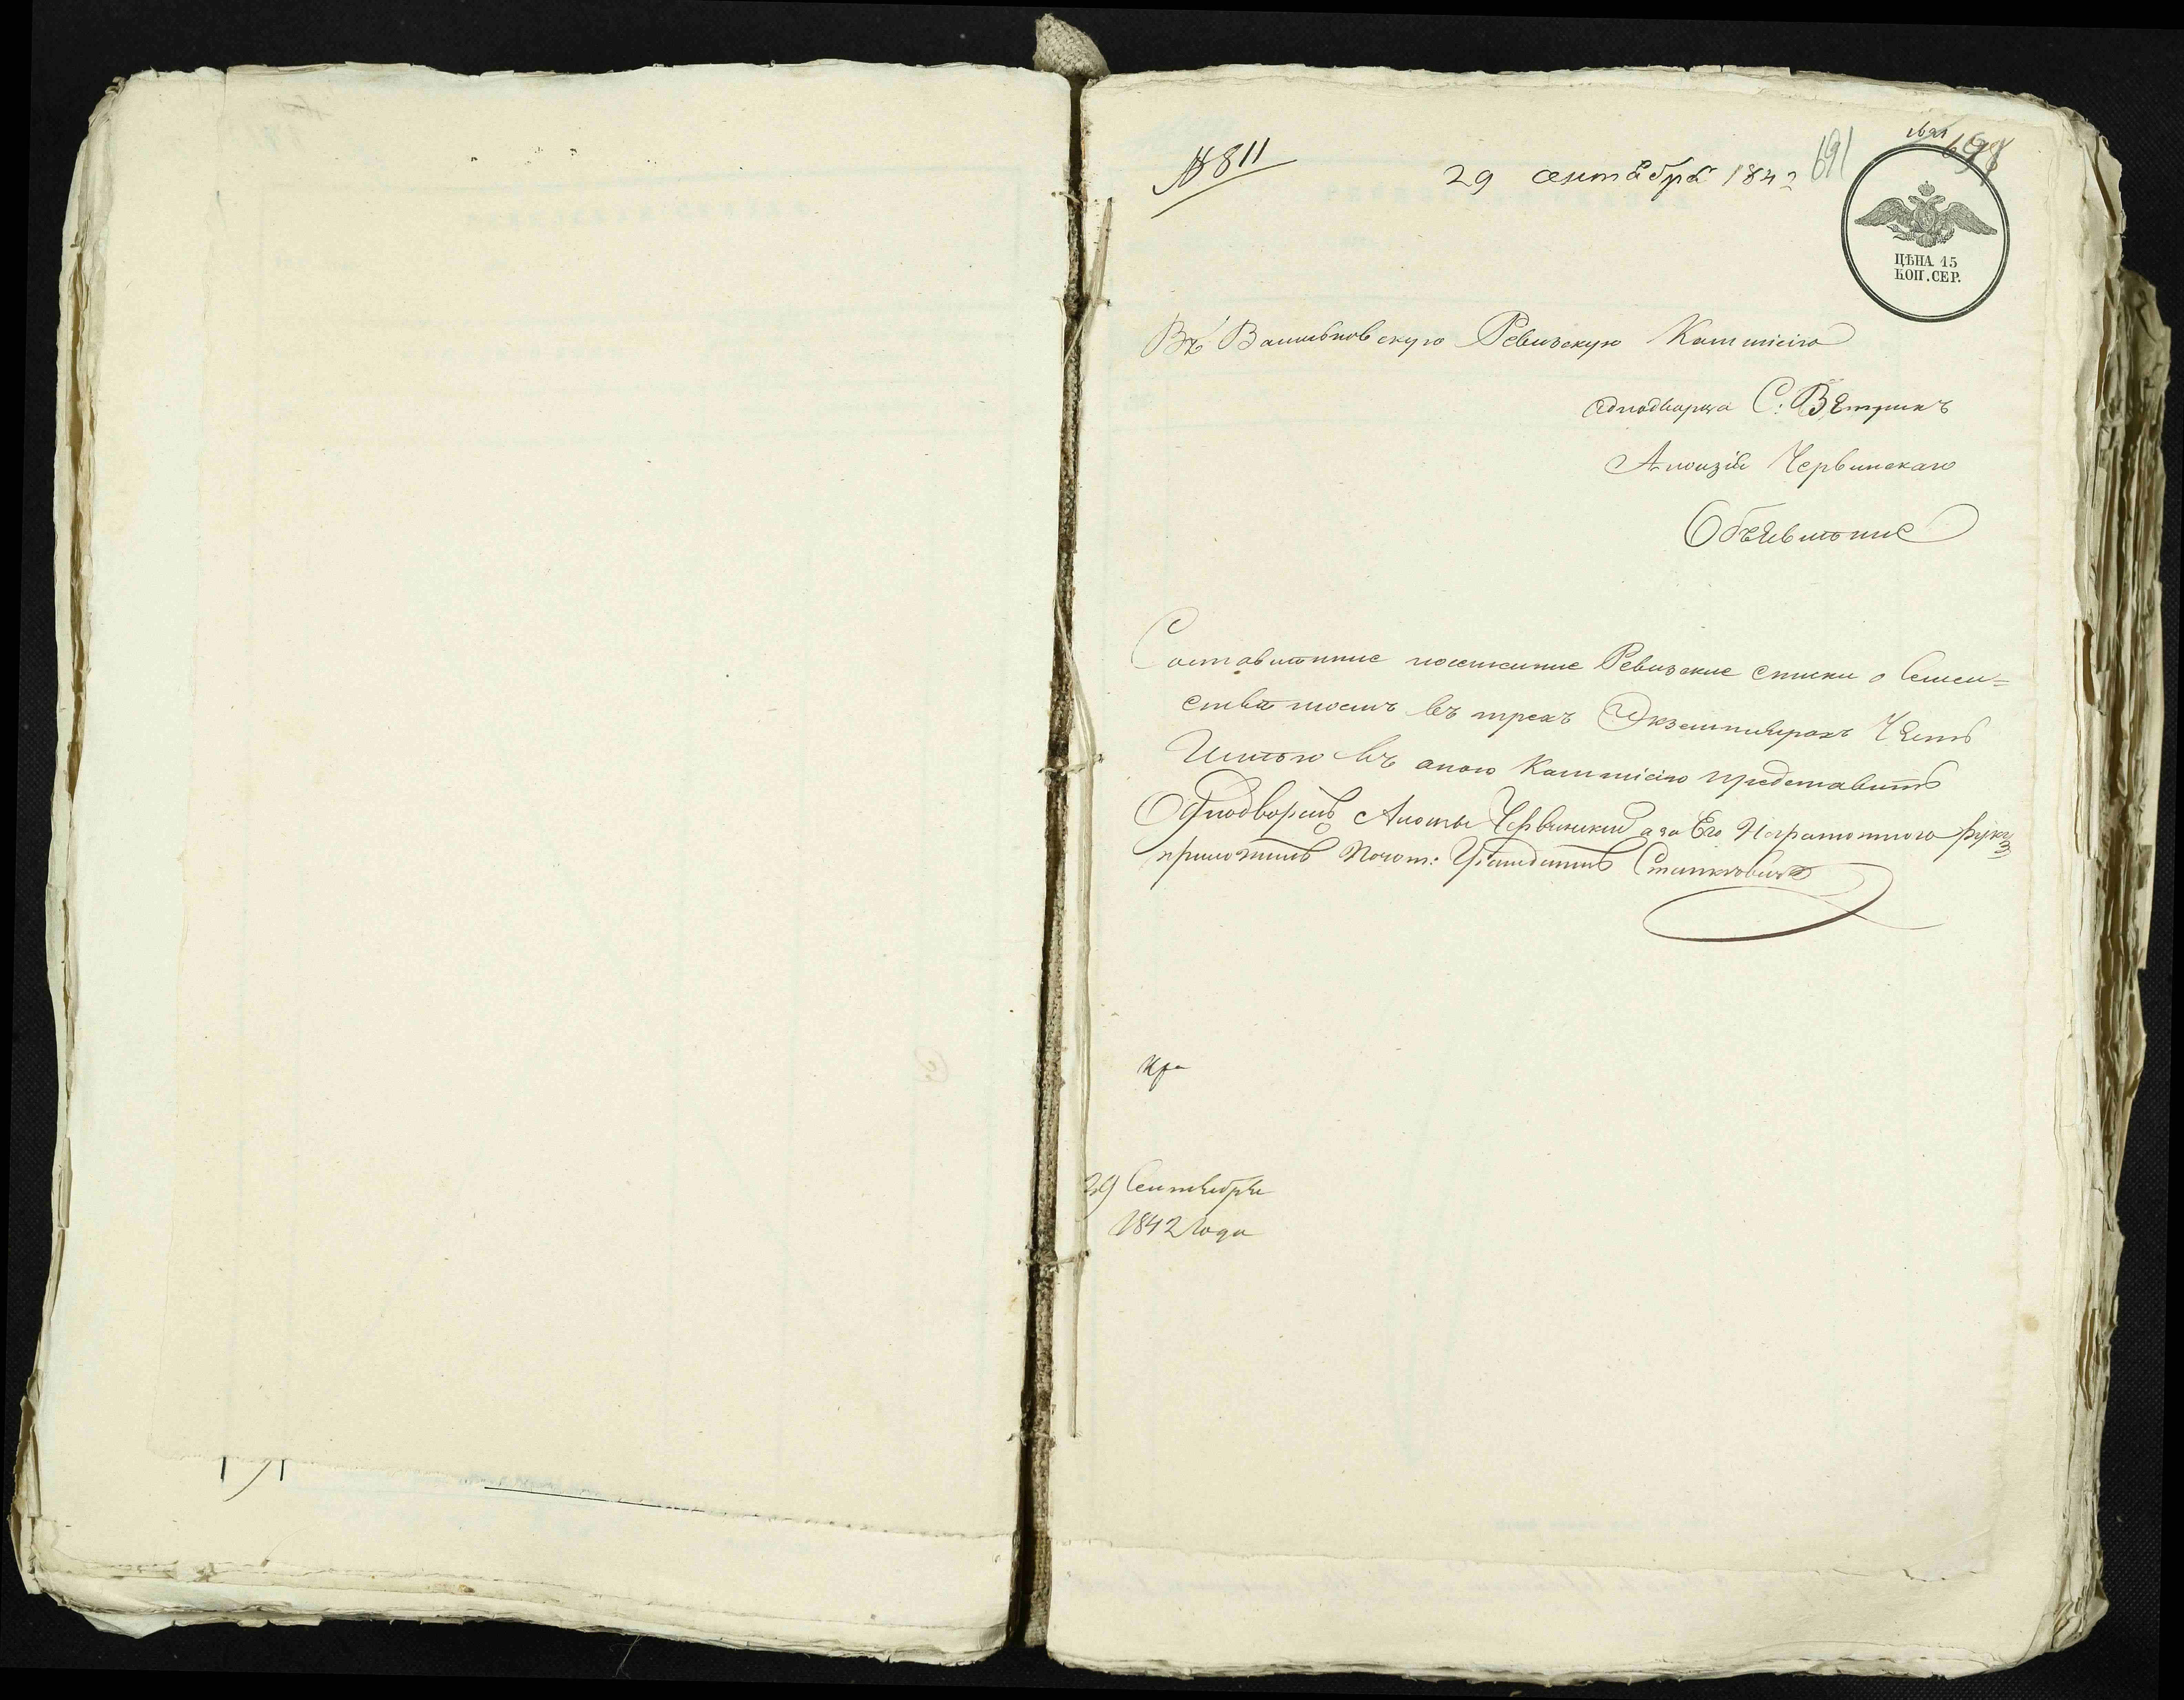 № 811
29 сентября 1842
691
ЦѢНА 15
КОП. СЕР.
Въ Васильковскую Ревизскую Коммисію
однодворца С: Вѣтрикъ
Алоизія Червинскаго
Объявленіе
Составленные посемейные Ревизские списки о Семей=
ствѣ моемъ въ трехъ Экземплярахъ Честь
Имѣю въ оною Коммисію представить
Однодворецъ Алоизы Червинский а за Его Неграмотного руку
приложилъ Почот: Гражданинъ Станкевичъ
29 Сентября
1842 года